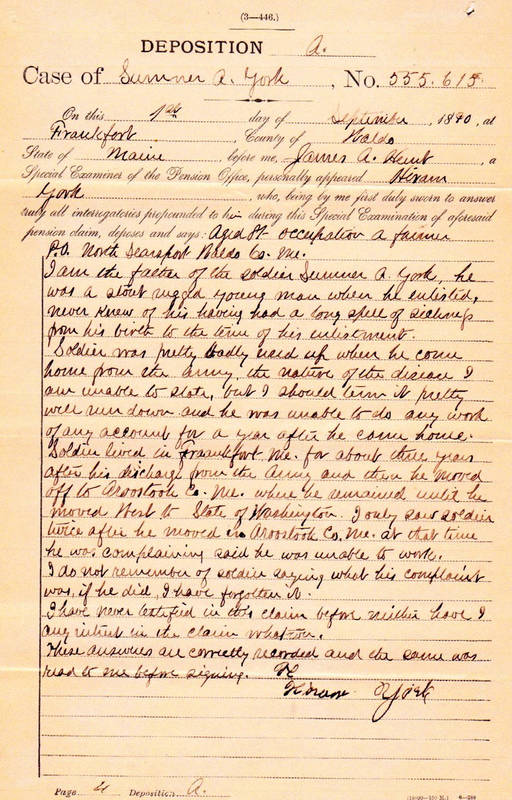 (3—446.)
DEPOSITION A.
Case of Sumner A. York, No. 555.615
On this 1st day of September, 1890, at
Frankfort County of Waldo
State of Maine, before me, James A. Hunt, a
Special Examiner of the Pension Office, personally appeared Hiram
York, who, being by me first duly sworn to answer
truly all interrogatories propounded to him during this Special Examination of aforesaid
pension claim, deposes and says: Aged occupation a farmer
P.O. North Searsport Waldo Co. Me.
I am the father of the soldier Sumner A York, he
was a stout rugged young man when he enlisted,
never knew of his having had a long spell of sickness
from his birth to the time of his enlistment.
Soldier was pretty badly used up when he come
home from the Army, the nature of the disease I
am unable to state, but I should term it pretty
well run down and he was unable to do any work
of any account for a year after he come home.
Soldier lived in Frankfort Me. for about three years
after his discharge from the Army and then he moved
off to Aroostook Co. Me. where he remained until he
moved West to State of Washington. I only saw soldier
twice after he moved in Aroostook Co. Me. at that time
he was complaining said he was unable to work.
I do not remember of soldier saying what his complaint
was, if he did, I have forgotten it.
I have never testified in this claim before neither have I
any interest in the claim whatever.
These answers are correctly recorded and the same was
read to me before signing.
Hiram York
Page 4 Deposition A.